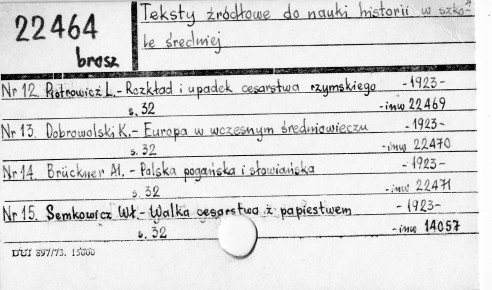 22464
brosz
Teksty źródłowe do nauki historii w szko-
le średniej
Nr 12. Piotrowicz L. - Rozkład i upadek cesarstwa rzymskiego -1923-
s. 32 -inw 22469
Nr 13. Dobrowolski K. - Europa w wczesnym średniowieczu -1923-
s. 32 -inw 22470
Nr 14. Brückner Al. - Polska pogańska i słowiańska -1923-
s. 32 -inw 22471
Nr 15. Semkowicz Wł. - Walka cesarstwa z papiestwem -1923-
s. 32 -inw 14057
DUJ 897/73. 15000